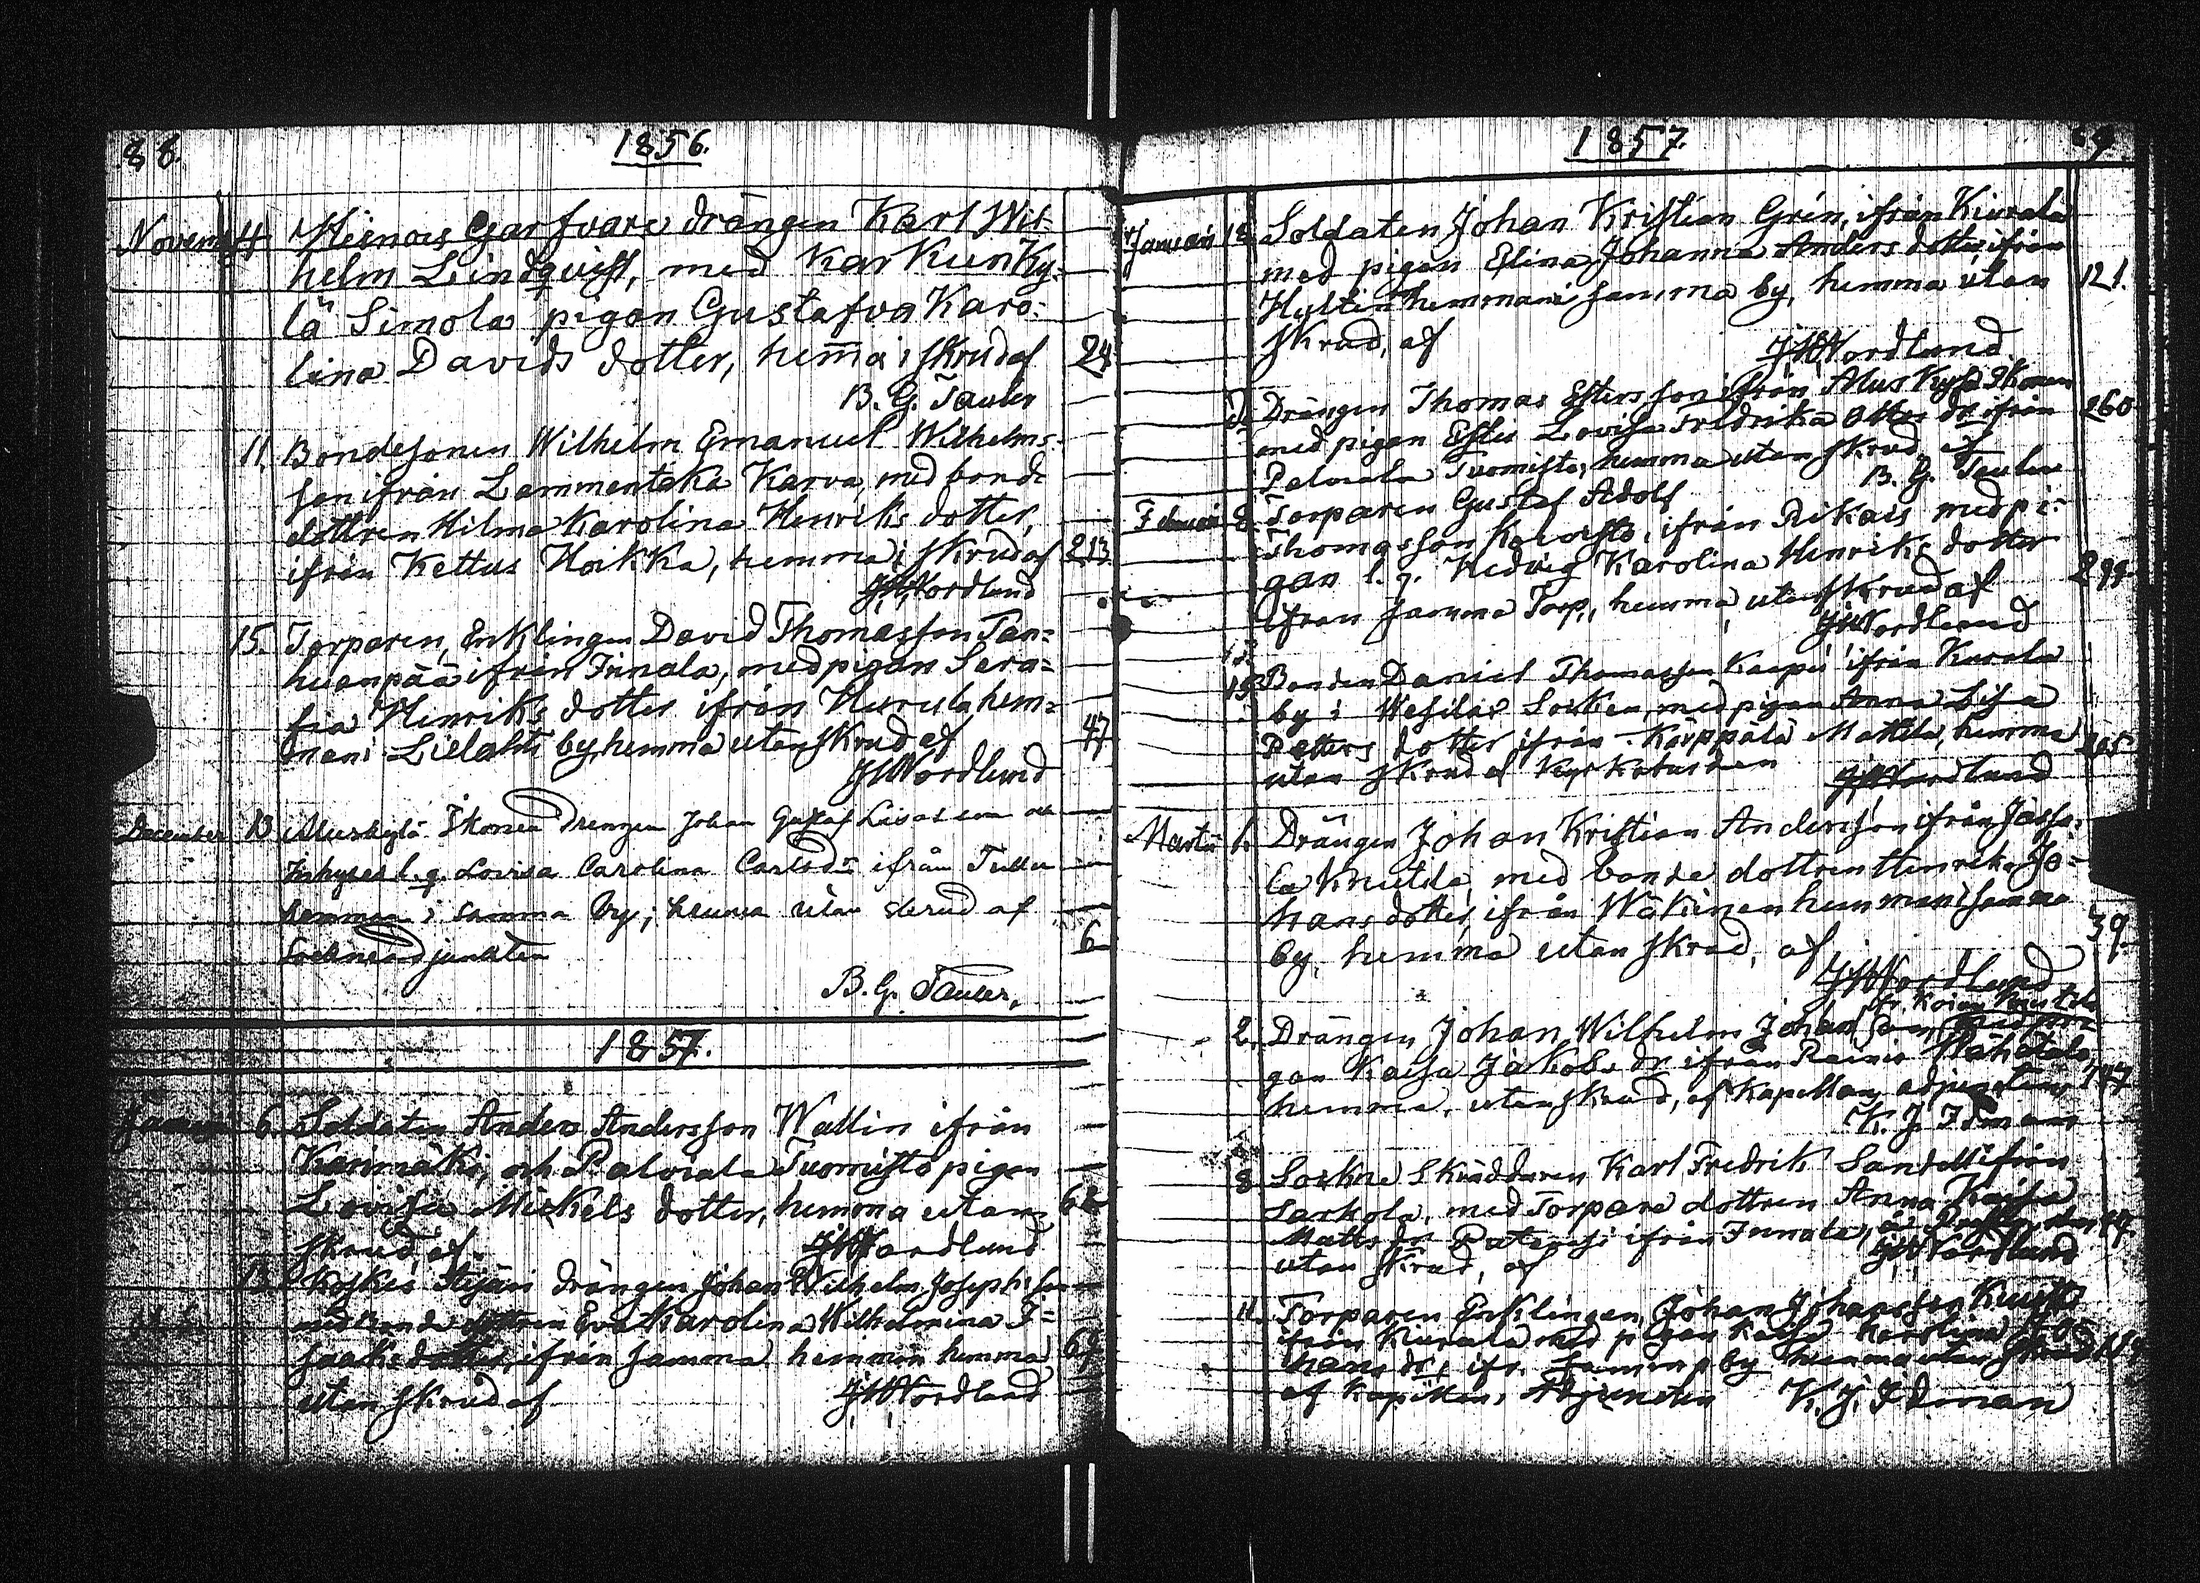 88.
1856.
Novemb 4 Heinois Garfvare drängen Karl Wil-
helm Lindqvist, med Karkun Ky-
lä Simola pigan Gustafva Karo-
lina Davids dotter, hemma i skrud af 24
B. G. Tauler
11. Bondesonen Wilhelm Emanuel Wilhelms-
son ifrån Lammentaka Karva, med bonde
dottren Hilma Karolina Henriks dotter,
ifrån Kettus Hoikka, hemma i skrud af 213.
Nordlund
15. Torparen, Enklingen David Thomasson Tan-
huanpää ifrån Innala, med pigan Sera-
fia Henriks dotter ifrån Hurula hem-
man i Lielahti by, hemma utan skrud af 47
Nordlund
December 13 Aluskylä Ikonen Drengen Johan Gustaf
l. q. Lovisa Carolina Carlsdr ifrån
hemman i samma by; hemma utan skrud af
Sockneadjunkten 6
B. G. Tauler.
1857.
Januari 6. Soldaten Anders Andersson Wallin ifrån
Karimäki, och Palviala Tuomisto pigan
Lovisa Mickels dotter, hemma utan 62
skrud, af Nordlund
13. Koskis Äijäri drängen Johan Wilhelm Josephsson
med Bonde dottren Eva Karolina Wilhelmina I-
saaks dotter, ifrån samma hemman hemma 69
utan skrud af Nordlund
1857.
89
Januari 18. Soldaten Johan Kristian Grén, ifrån Kiurala
med pigan Elina Johanna Anders dotter ifrån
hemman i samma by, hemma utan 121.
skrud, af Nordlund
D. Drängen Thomas ifrån Aluskylä Ikonen
med pigan Lovisa Fredrika dr ifrån 260
Palviala Tuomisto, hemma utan skrud af
B. G. Tauler
Februari 8. Torparen Gustaf Adolf
Thomasson Koivisto, ifrån Rikais med pi-
gan l. q. Hedvig Karolina Henriks dotter
ifrån samma Torp, hemma, utan skrud af 299
Nordlund
15. Bonden Daniel Thomasson ifrån Kurala
by i Wesilax Socken, med pigan Anna Lisa
Petters dotter ifrån Käppälä Mattila, hemma
utan skrud af Kyrkoherden
Nordlund
Martii 1. Drängen Johan Kristian Andersson ifrån
la Knutila, med bonde dottren Henrika Jo-
hans dotter, ifrån hemman i samma
by, hemma utan skrud, af 39.
Nordlund
2. Drängen Johan Wilhelm Johansson
gan Kaisa Jakobs dr ifrån
hemma, utan skrud, af Kapellans adjuncten
K. J. Idman
8. Sockne Skräddaren Karl Fredrik Sandell ifrån
Sarkola, med Torpare dottren Anna Kaisa
Matts dr ifrån Innala,
utan skrud, af Nordlund
11. Torparen Enklingen, Johan Johansson
ifrån Kurala med pigan Kaisa Karolina Jo-
hans dr, ifr. samma by hemma utan skrud
af Kapellans Adjuncten K. J. Idman